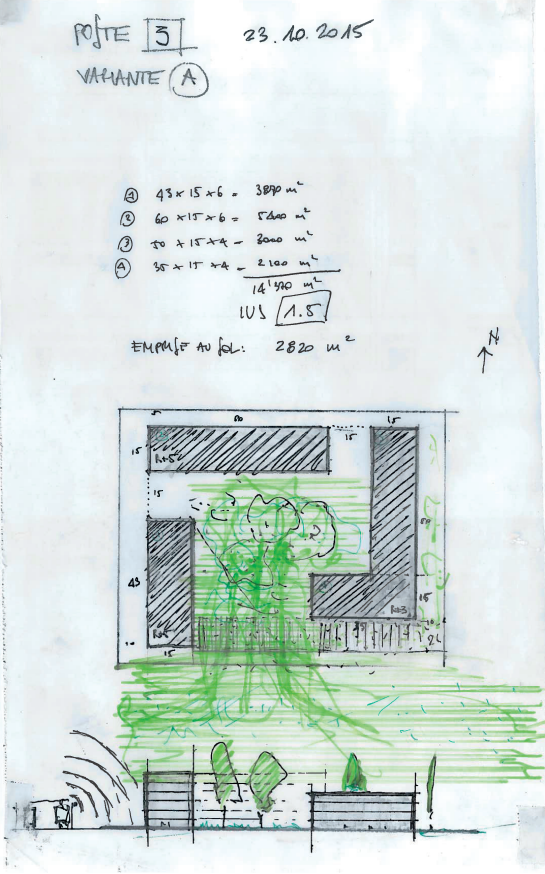 POSTE 3 23.10.2015
VARIANTE A
1 43 x 15 x 6 = 3870 m²
2 60 x 15 x 6 = 5400 m²
3 50 x 15 x 4 = 3000 m²
4 35 x 15 x 4 = 2100 m²
14'370 m²
IUS 1.5
EMPRISE AU SOL: 2820 m²
N
5 60 15
15 15
R+5
15
50
43
15
R+3
R+5
10
15